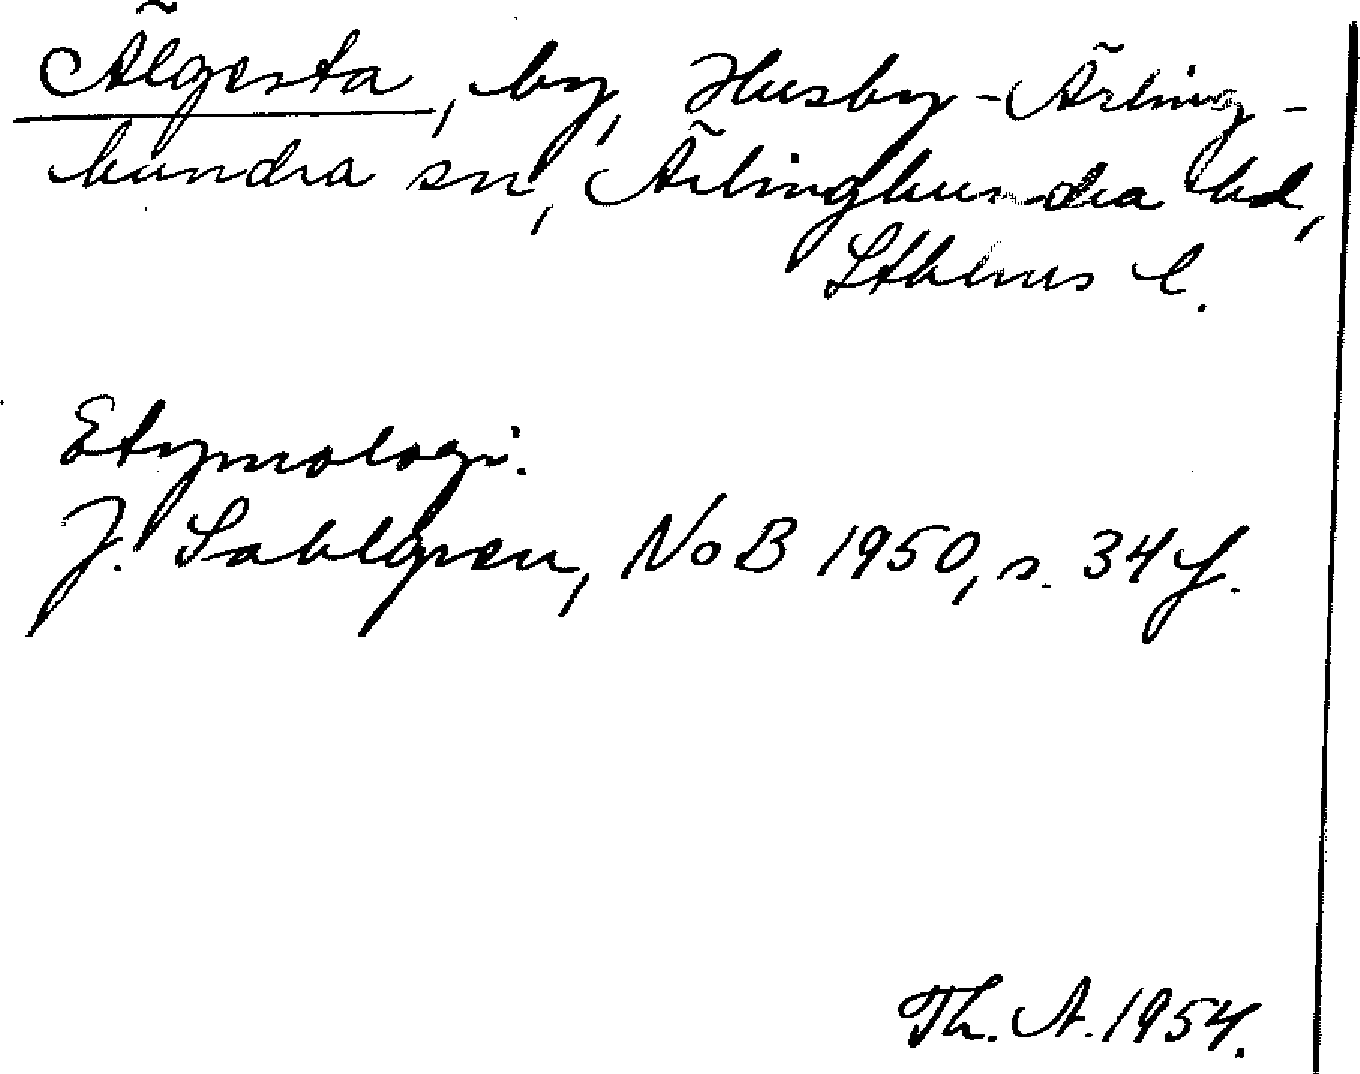 Älgesta, by, Husby-Ärling-
hundra sn, Ärlinghundra hd,
Sthlms l.
Etymologi.
J. Sahlgren, NoB 1950, s. 34 f.
Th. A. 1954.